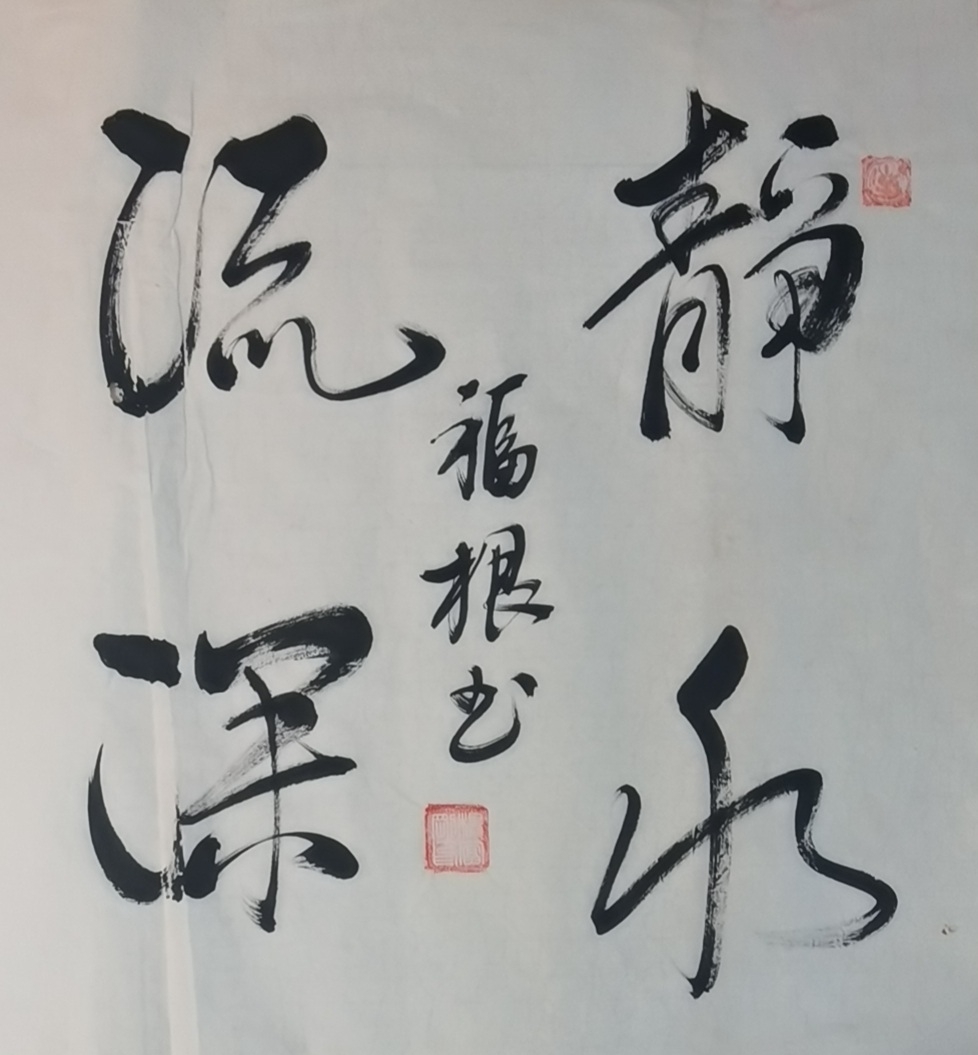 静水
流深
福根书